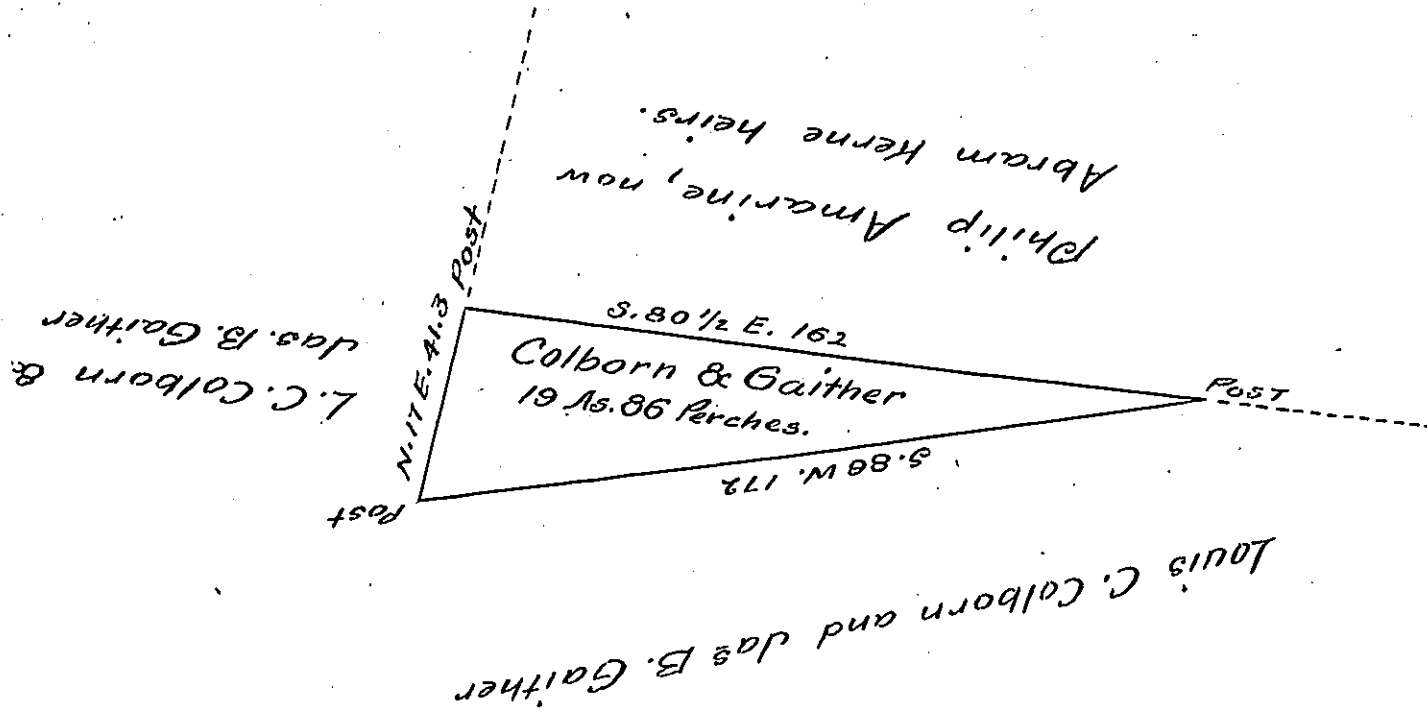 Philip Amarine, now
Abram Herne heirs.
L.C. Colborn &
Jas. B. Gaither
N.17 E. 41.3
Post
S.80 1/2 E. 162
Colborn & Gaither
19 As. 86 Perches.
Post
S.86 W. 172
Post
Louis C. Colborn and Jas B. Gaither